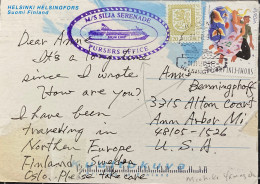 HELSINKI HELSINGFORS
Suomi Finland
M/S SILJA SERENADE
PURSERS OFFICE
Dear Ann
It's a lo
since I wrote
How are you?
I have been
travelling in
Northern Europe
Finland, Sweden
Oslo. Please take care
Ann
Benninghoff
3715 Alton Court
Ann Arbor Mi
48105-1526
U.S.A